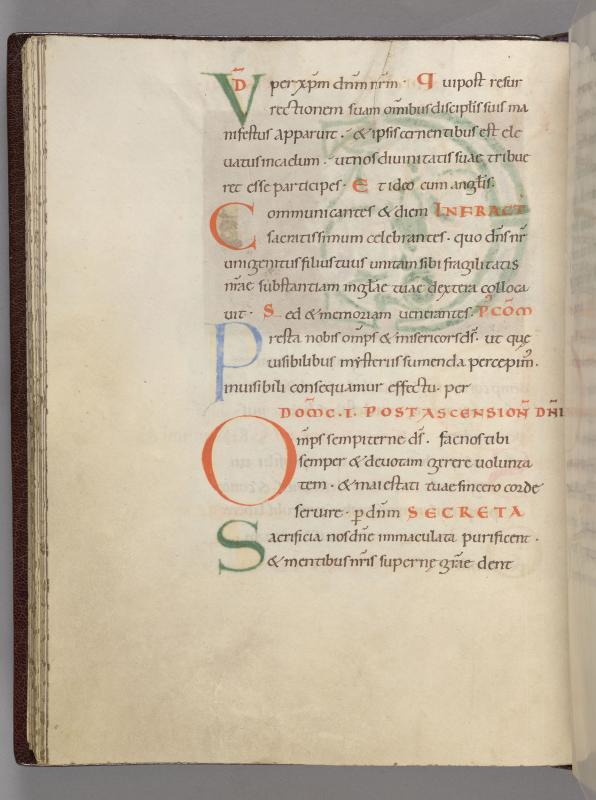 VD̄ per xp̄m dn̄m nr̄m · Qui post resur
rectionem suam omībus disciplis suis ma
nifestus apparuit · & ipsis cernentibus est ele
uatus in cælum · ut nos diuinitatis suae tribue
ret esse participes · Et ideo cum angl̄is.
Communicantes & diem INFRACT̄
sacratissimum celebrantes · quo dn̄s nr̄
unigenitus filius tuus unitam sibi fragilitatis
nr̄ae substantiam in gl̄ae tuae dextera colloca
uit · Sed & memoriam uenerantes · P̄ COM̄
Presta nobis omp̄s & misericors ds̄ · ut que
uisibilibus mysteriis sumenda percepim̄ ·
inuisibili consequamur effectu · per
DOM̄C · I · POST ASCENSION̄ DN̄I
Omp̄s sempiterne ds̄ · fac nos tibi
semper & deuotam gerere uolunta
tem · & maiestati tuae sincero corde
seruire · p̄ dn̄m SECRETA
Sacrificia nos dn̄e immaculata purificent ·
& mentibus nr̄is supernę gr̄ae dent